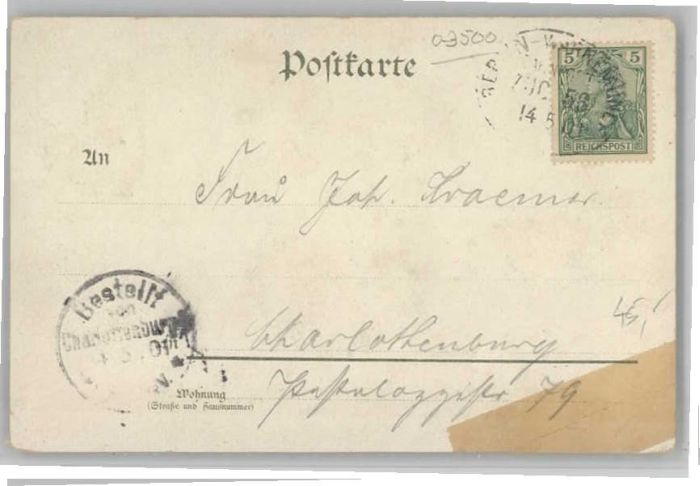 03500
Postkarte
5 5
ZUG 58
14 5 01
REICHSPOST
An
Frau Joh. Kraemer
45,-
Bestellt
von
Charlottenburg
5. 01
Charlottenburg
Wohnung
(Straße und Hausnummer)
Pestalozzistr 79